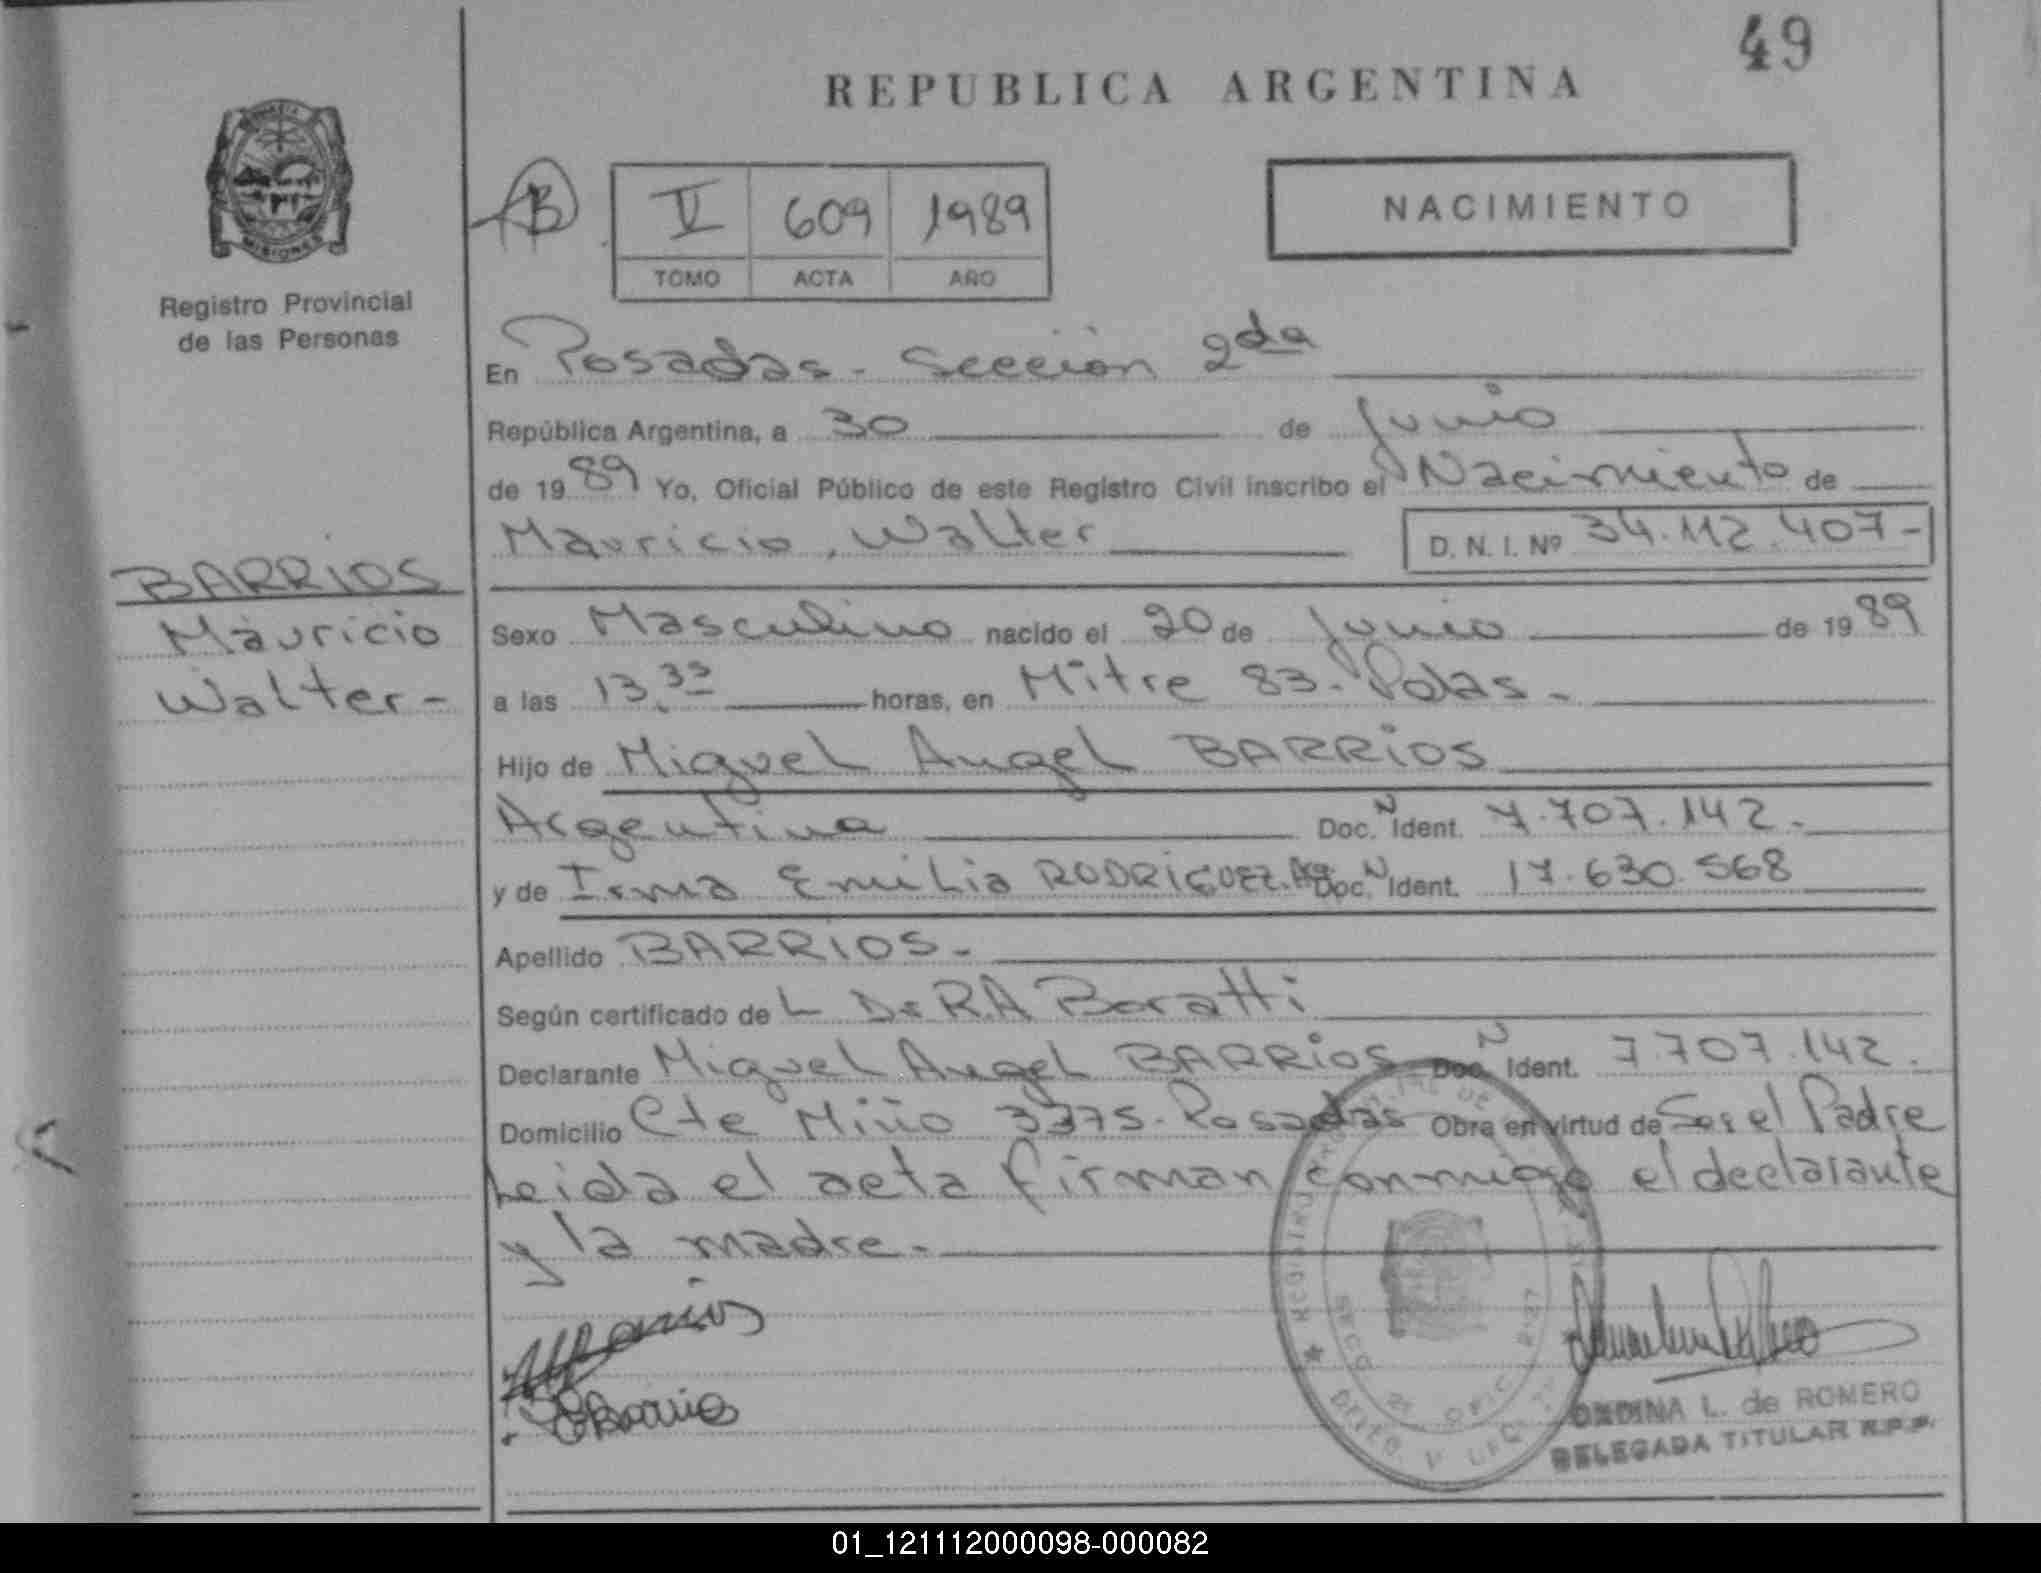 49
REPUBLICA ARGENTINA
B
V 609 1989
TOMO ACTA AÑO
NACIMIENTO
PROVINCIA
MISIONES
Registro Provincial
de las Personas
En Posadas - Sección 2da
República Argentina, a 30 de Junio
de 1989 Yo, Oficial Público de este Registro Civil inscribo el Nacimiento de
Mauricio, Walter D. N. I. Nº 34.112.407-
BARRIOS
Mauricio
Walter-
Sexo Masculino nacido el 20 de Junio de 1989
a las 13.35 horas, en Mitre 83. Pdas -
Hijo de Miguel Angel BARRIOS
Argentina Doc. N Ident. 7.707.142.
y de Irma Emilia RODRIGUEZ. Ag Doc. N Ident. 17.630.568
Apellido BARRIOS -
Según certificado de L Dr R.A Boratti
Declarante Miguel Angel BARRIOS Doc. N Ident. 7.707.142.
Domicilio Cte Miño 3375. Posadas Obra en virtud de Ser el Padre
Leida el acta firman conmigo el declarante
y la madre.-
Barrios
Barrios
ONDINA L. de ROMERO
DELEGADA TITULAR R.P.P.
01_121112000098-000082